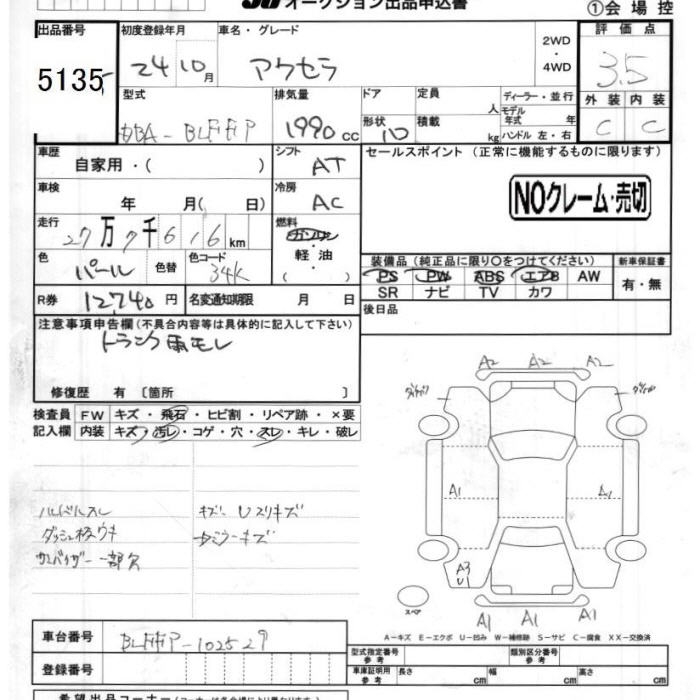 オークション出品申込書
①会場控
出品番号 初度登録年月 車名・グレード 2WD ・ 4WD 評価点
5135 24年10月 アクセラ 3.5
型式 排気量 ドア 定員 人 ディーラー・並行
外装 内装
モデル年式 年式
DBA- 1990cc 形状 10 積載 kg ハンドル 左・右 C C
車歴 自家用・( ) シフト AT セールスポイント (正常に機能するものに限ります)
車検 年 月( 日) 冷房 AC
NOクレーム・売切
走行 27万7千616km 燃料 ガソリン・軽油・( )
色 パール 色替 色コード 34K
装備品(純正品に限り○をつけてください) 新車保証書
PS PW ABS エアB AW 有・無
SR ナビ TV カワ
R券 12,740円 名変通知期限 月 日
後日品
注意事項申告欄(不具合内容等は具体的に記入して下さい)
トランク雨モレ
修復歴 有〔箇所 〕
検査員 FW キズ・飛石・ヒビ割・リペア跡・×要
記入欄 内装 キズ・汚レ・コゲ・穴・スレ・キレ・破レ
A2 A2 A2
A1 A1
ハンドルスレ キズ・Uスリキズ
ダッシュ板ウキ ミラーキズ
サンバイザー一部欠
A3
U1
スペア
A1 A1
A-キズ E-エクボ U-凹み W-補修跡 S-サビ C-腐食 XX-交換済
車台番号
登録番号
型式指定番号 参考 類別区分番号 参考
車庫証明用 参考 長さ cm 幅 cm 高さ cm
希望出品コーナー